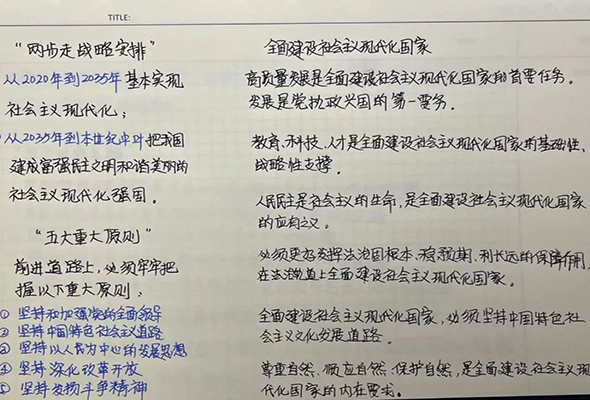 TITLE:
“两步走战略安排”
从2020年到2035年基本实现
社会主义现代化；
从2035年到本世纪中叶把我国
建成富强民主文明和谐美丽的
社会主义现代化强国。
“五大重大原则”
前进道路上，必须牢牢把
握以下重大原则：
① 坚持和加强党的全面领导
② 坚持中国特色社会主义道路
③ 坚持以人民为中心的发展思想
④ 坚持深化改革开放
⑤ 坚持发扬斗争精神
全面建设社会主义现代化国家
高质量发展是全面建设社会主义现代化国家的首要任务。
发展是党执政兴国的第一要务。
教育、科技、人才是全面建设社会主义现代化国家的基础性、
战略性支撑。
人民民主是社会主义的生命，是全面建设社会主义现代化国家
的应有之义。
必须更好发挥法治固根本、稳预期、利长远的保障作用，
在法治轨道上全面建设社会主义现代化国家。
全面建设社会主义现代化国家，必须坚持中国特色社
会主义文化发展道路。
尊重自然、顺应自然、保护自然，是全面建设社会主义现
代化国家的内在要求。